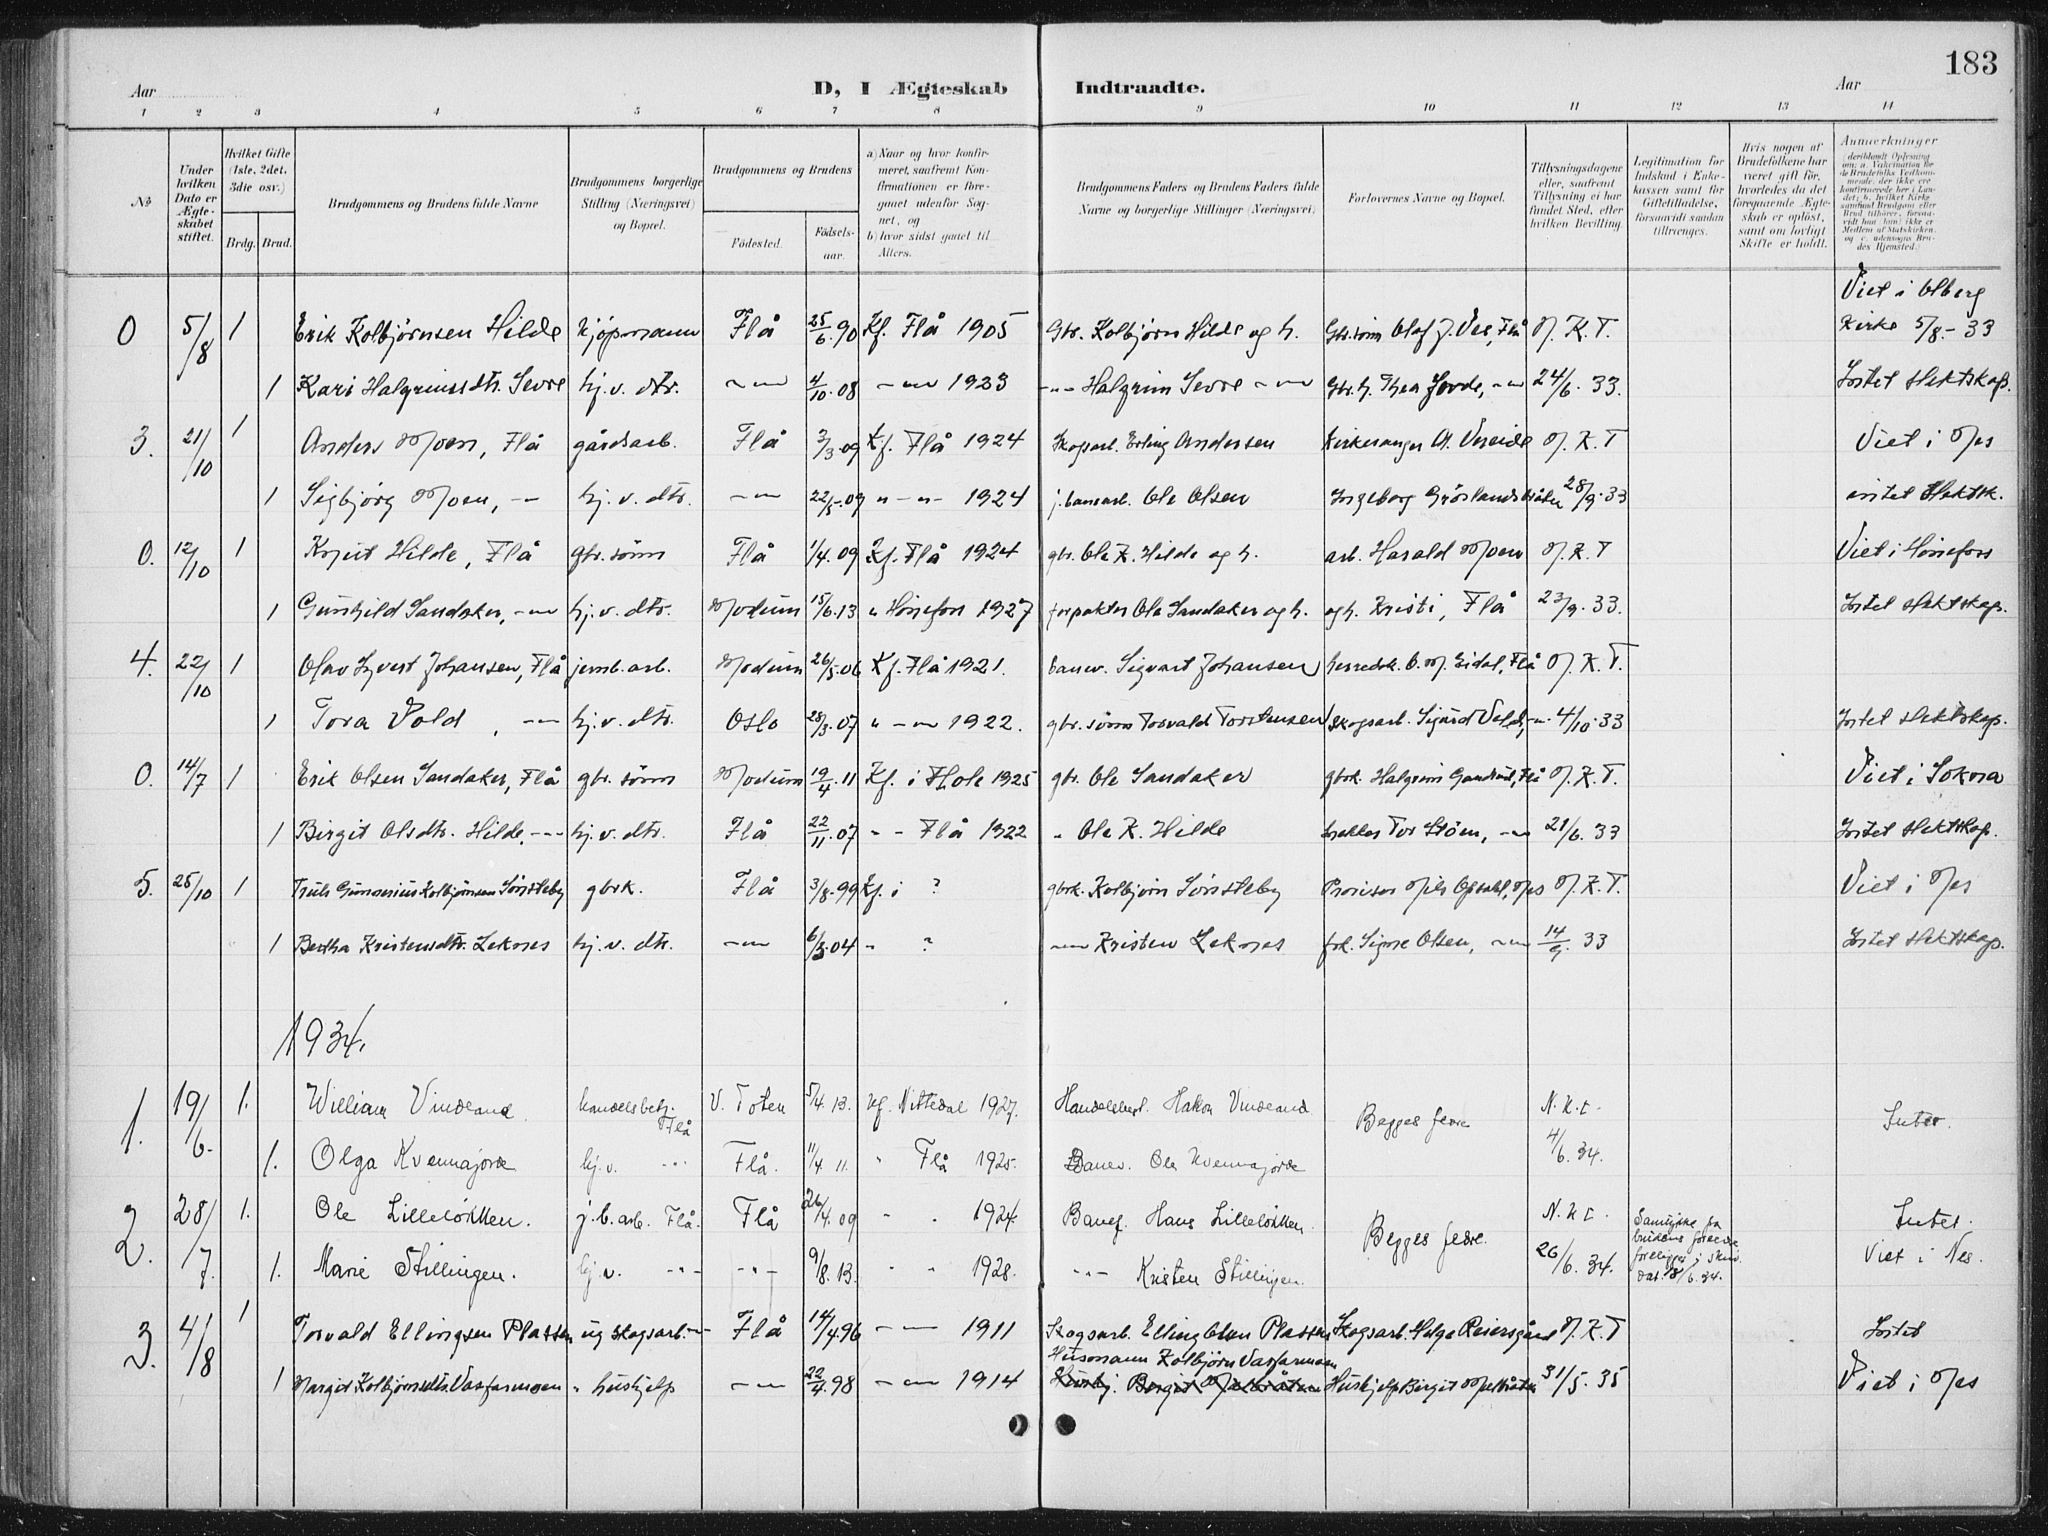 183
Aar
D, I Ægteskab Indtraadte.
Aar
1 2 3 4 5 6 7 8 9 10 11 12 13 14
No
Under hvilken Dato er Ægteskabet stiftet.
Hvilket Gifte (1ste, 2det, 3die osv.)
Brdg. Brud.
Brudgommens og Brudens fulde Navne
Brudgommens borgerlige Stilling (Næringsvei) og Bopæl.
Brudgommens og Brudens
Födested.
Födsels-aar.
a) Naar og hvor konfirmeret, saafremt Konfirmationen er foregaaet udenfor Sognet, og
b) hvor sidst gaaet til Alters.
Brudgommens Faders og Brudens Faders fulde Navne og borgerlige Stillinger (Næringsvei)
Forlovernes Navne og Bopæl.
Tillysningsdagene eller, saafremt Tillysning ei har fundet Sted, efter hvilken Bevilling.
Legitimation for Indskud i Enkekassen samt for Giftetilladelse, forsaavidt saadan tiltrænges.
Hvis nogen af Brudefolkene har været gift før, hvorledes da det foregaaende Ægteskab er opløst, samt om lovligt Skifte er holdt.
Anmærkninger
Viet i Olberg
0 5/8 1 Erik Kolbjørnsen Hilde kjøpmann Flå 25/6 90 Kf. Flå 1905 Gbr. Kolbjørn Hilde og h. Gbr.sønn Olaf J. Ves, Flå N. K. T. Kirke 5/8 - 33
1 Kari Halgrimsdtr. Sevre hj.v. dtr. -"- 4/10 08 -"- 1923 -"- Halgrim Sevre -"- Gbr.h. Thea Jorde, -"- 24/6. 33. Intet slektskap.
3. 21/10 1 Anders Moen, Flå gårdsarb. Flå 3/3.09 Kf. Flå 1924 Skogsarb. Erling Andersen Kirkesanger A. Vereide N. K. T Viet i Nes
1 Sigbjørg Moen, -"- hj.v. dtr. -"- 22/5-09 "-"- 1924 j.banearb. Ole Olsen Ingeborg 28/9.33 intet slektsk.
0. 12/10 1 Knut Hilde, Flå gbr. sønn Flå 1/4.09 Kf. Flå 1924 gbr. Ole K. Hilde og h. arb. Harald Moen N. K. T Viet i Hønefoss
1 Gunhild Sandaker, -"- hj.v. dtr. Modum 15/6.13 " Hønefoss 1927 forpakter Ole Sandaker og h. og h. Kristi, Flå 23/9. 33. Intet slektskap.
4. 22/10 1 Olav Syvert Johansen, Flå jernb.arb. Modum 26/5.06 Kf. Flå 1921. banev. Sigvart Johansen herredsk. O. M. Eidal, Flå N. K. T.
1 Tora Vold, -"- hj.v. dtr. Oslo 28/3.07 " -"- 1922. gbr. sønn Torvald Torstensen Skogsarb. Sigurd Vold, -"- 4/10.33 Intet slektskap.
0. 14/7 1 Erik Olsen Sandaker, Flå gbr. sønn Modum 19/4.11 Kf. i Hole 1925 gbr. Ole Sandaker gbrk. Halgrim Gandrud, Flå N. K. T. Viet i Sokna
1 Birgit Olsdtr. Hilde, -"- hj.v. dtr. Flå 22/11.07 " - Flå 1922 " Ole K. Hilde Tor Støen, -"- 21/6. 33 Intet slektskap.
5. 25/10 1 Truls Gunnerius Kolbjørnsen Sønsteby gbrk. Flå 3/8.99 Kf. i ? gbrk. Kolbjørn Sønsteby Provisor Nils Opdahl, Nes N. K. T. Viet i Nes
1 Bertha Kristensdtr. Leknes hj.v. dtr. -"- 6/3.04 " ? -"- Kristen Leknes frk. Signe Olsen, -"- 14/9. 33 Intet slektskap.
1934.
1. 19/6. 1. William Vindeland handelsbetj. Flå V. Toten 5/4.13. Kf. Nittedal 1927. Handelsbest. Hakon Vindeland Begges fedre N.K.T. 4/6.34. Intet.
1. Olga Kvennajorde hj.v. -"- Flå. 11/4 11. " Flå 1925. Banev. Ole Kvennajorde
2. 28/7. 1. Ole Lilleløkken. j.b.arb. Flå. Flå 26/4.09 " " 1924. Banef. Hans Lilleløkken Begges fedre. N.K.T. 26/6.34. Samtykke fra brudens foreldre foreligger i skriv. dat. 18/6.34. Intet.
1. Marie Stillingen. hj.v. -"- -"- 9/8.13. " " 1928. -"- Kristen Stillingen. Viet i Nes.
3. 4/8 1 Torvald Ellingsen Plassen ug skogsarb. -"- Flå 14/4.96 -"- 1911 Skogsarb. Elling Olsen Plassen Skogsarb. Helge Reiersgård N. K. T Intet
Husmann Kolbjørn Vasfarmoen
1 Margit Kolbjørnsdtr. Vasfarmoen " hushjelp -"- 22/4.98 -"- 1914 Hushj. Birgit Hushjelp Birgit 31/5. 35 Viet i Nes